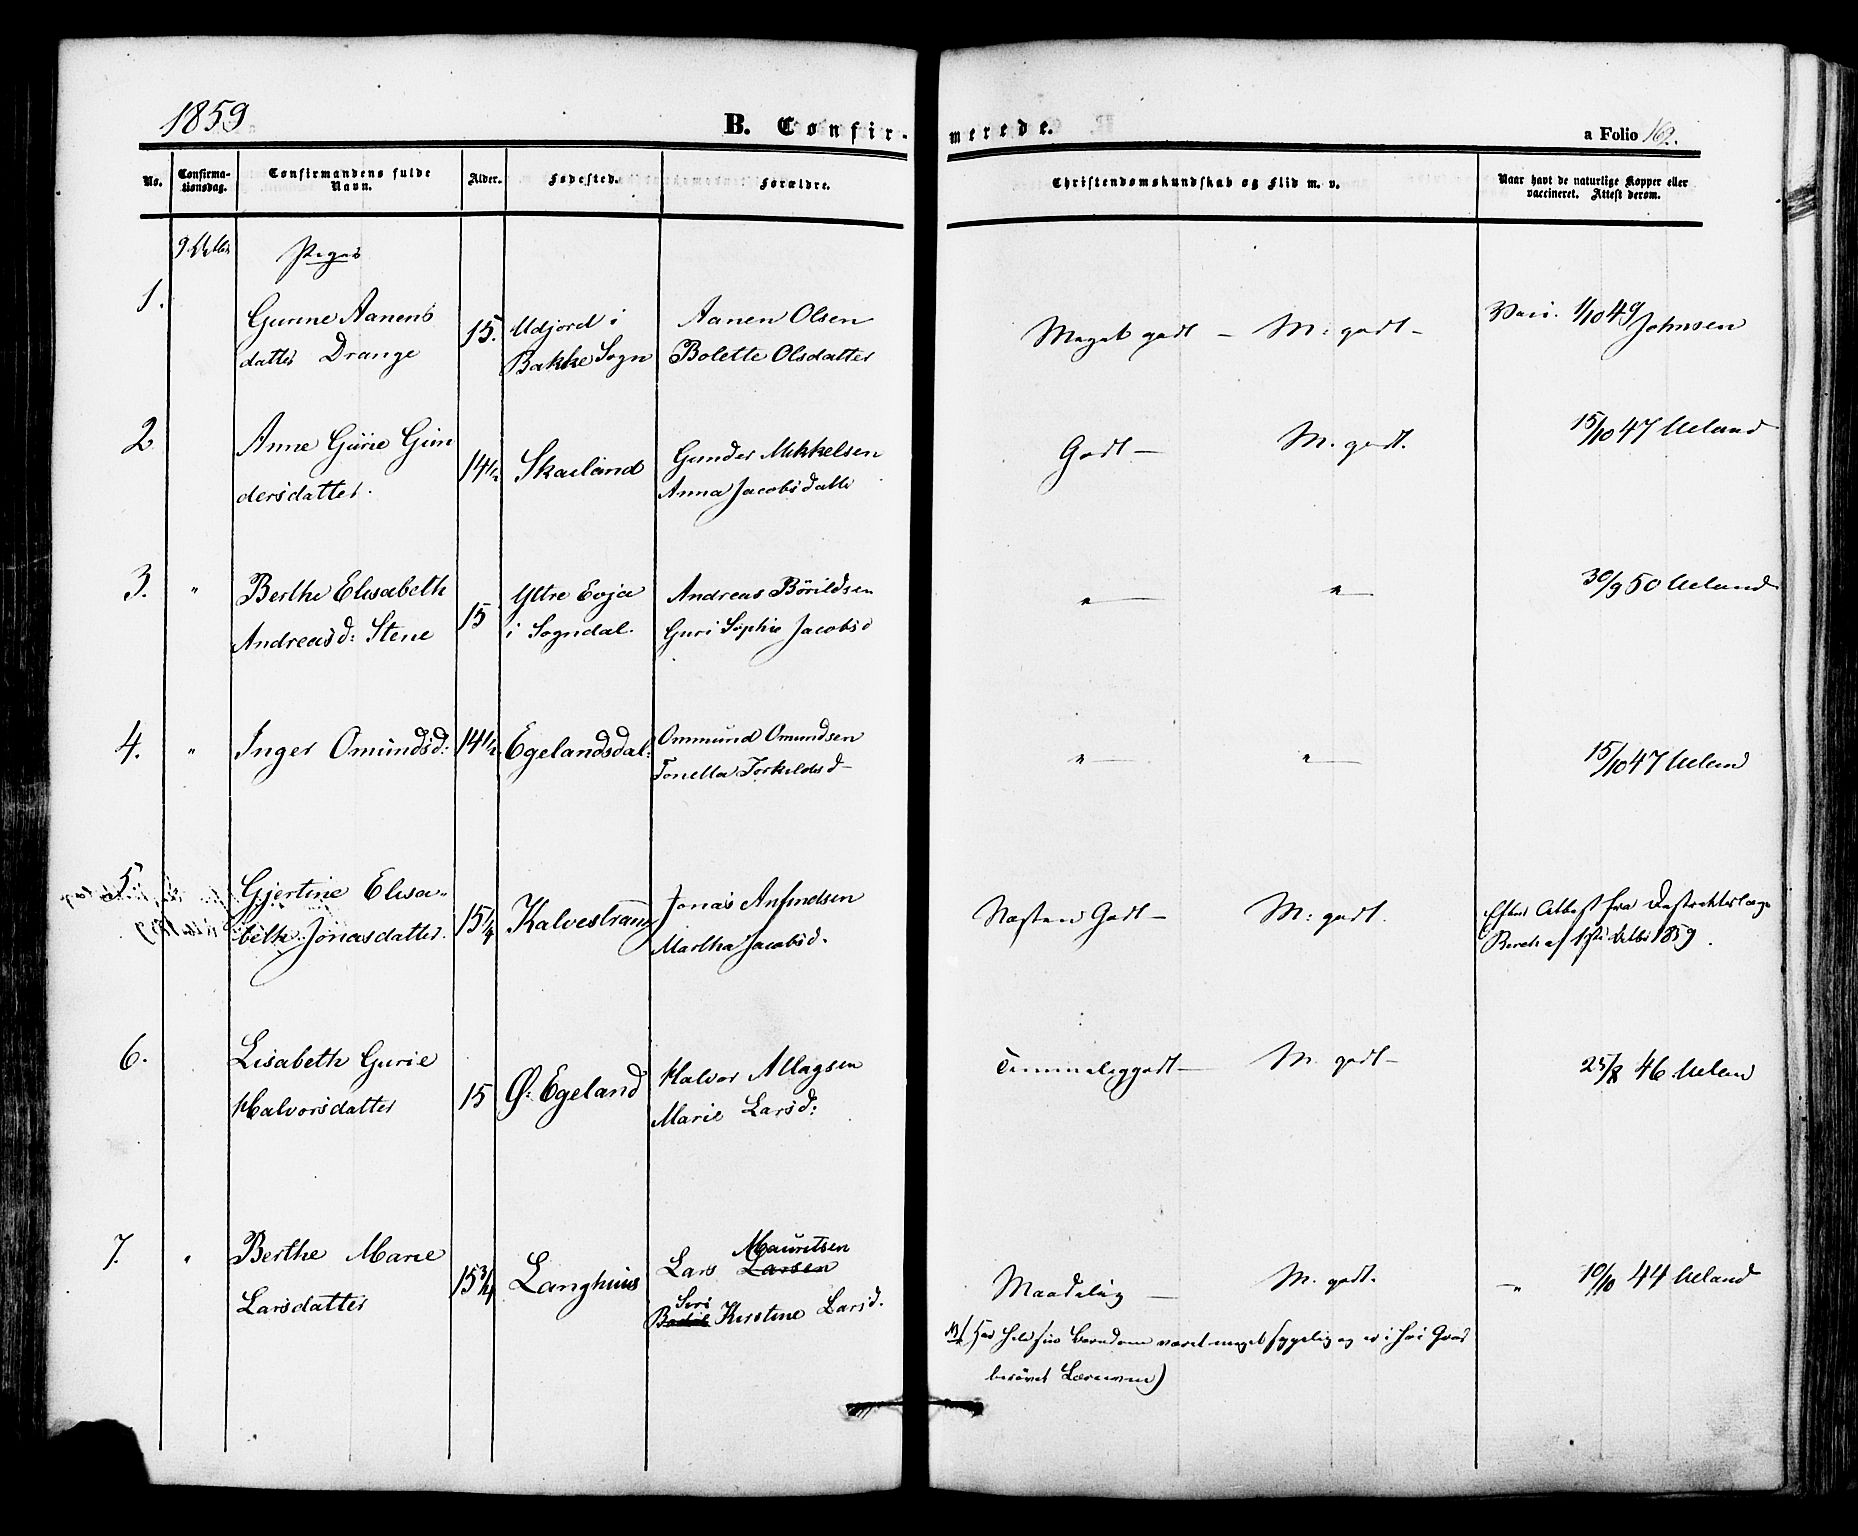 1859
B. Confir-
merede.
a Folio 169.
No.
Confirma-
tionsdag.
Confirmandens fulde
Navn.
Alder.
Fødested.
Forældre.
Christendomskundskab og Flid m. v.
Naar havt de naturlige Kopper eller
vaccineret. Attest derom.
Piger
1.
Gurine Aanens
datter Drange
15.
Udjord i
Bakke Sogn
Aanen Olsen
Bolette Olsdatter
Meget godt — M: godt —
Vacc. 1/10 49 Johnsen
2
Anne Gurie Gun
dersdatter.
14 1/2
Skailand
Gunder Mikkelsen
Anna Jacobsdatte
Godt — M. godt.
15/10 47 Ueland
3. "
Berthe Elisabeth
Andreasd: Stene
15
Yttre Evja
i Sogndal.
Andreas Børildsen
Guri Sophie Jacobsd
" — " —
30/9 50 Ueland
4. "
Inger Omundsd:
14 1/2
Egelandsdal:
Ommund Omundsen
Tonella Torkildsd —
" — " —
15/10 47 Ueland
5.
Gjertine Elisa-
beth Jonasdatter
15 1/4
Kalvestrang
Jonas Anfindsen
Martha Jacobsd.
Næsten Godt — M: godt.
Efter Attest fra Destrektslæge
Berch af 1ste Octbr 1859.
6.
Lisabeth Gurie
Halvorsdatter
15
Ø: Egeland
Halvor Allagsen
Marie Larsd:
Temmeliggodt — M. godt —
25/8 46 Ueland
7. "
Berthe Marie
Larsdatter
15 3/4
Langhuus
Mauritsen
Lars Larsen
Siri
Bodil Kirstine Larsd.
Maadelig — M. godt.
— " 10/10 44 Ueland
har hele sin Barndom været meget sygelig og er i høi Grad
berøvet Læreevne)